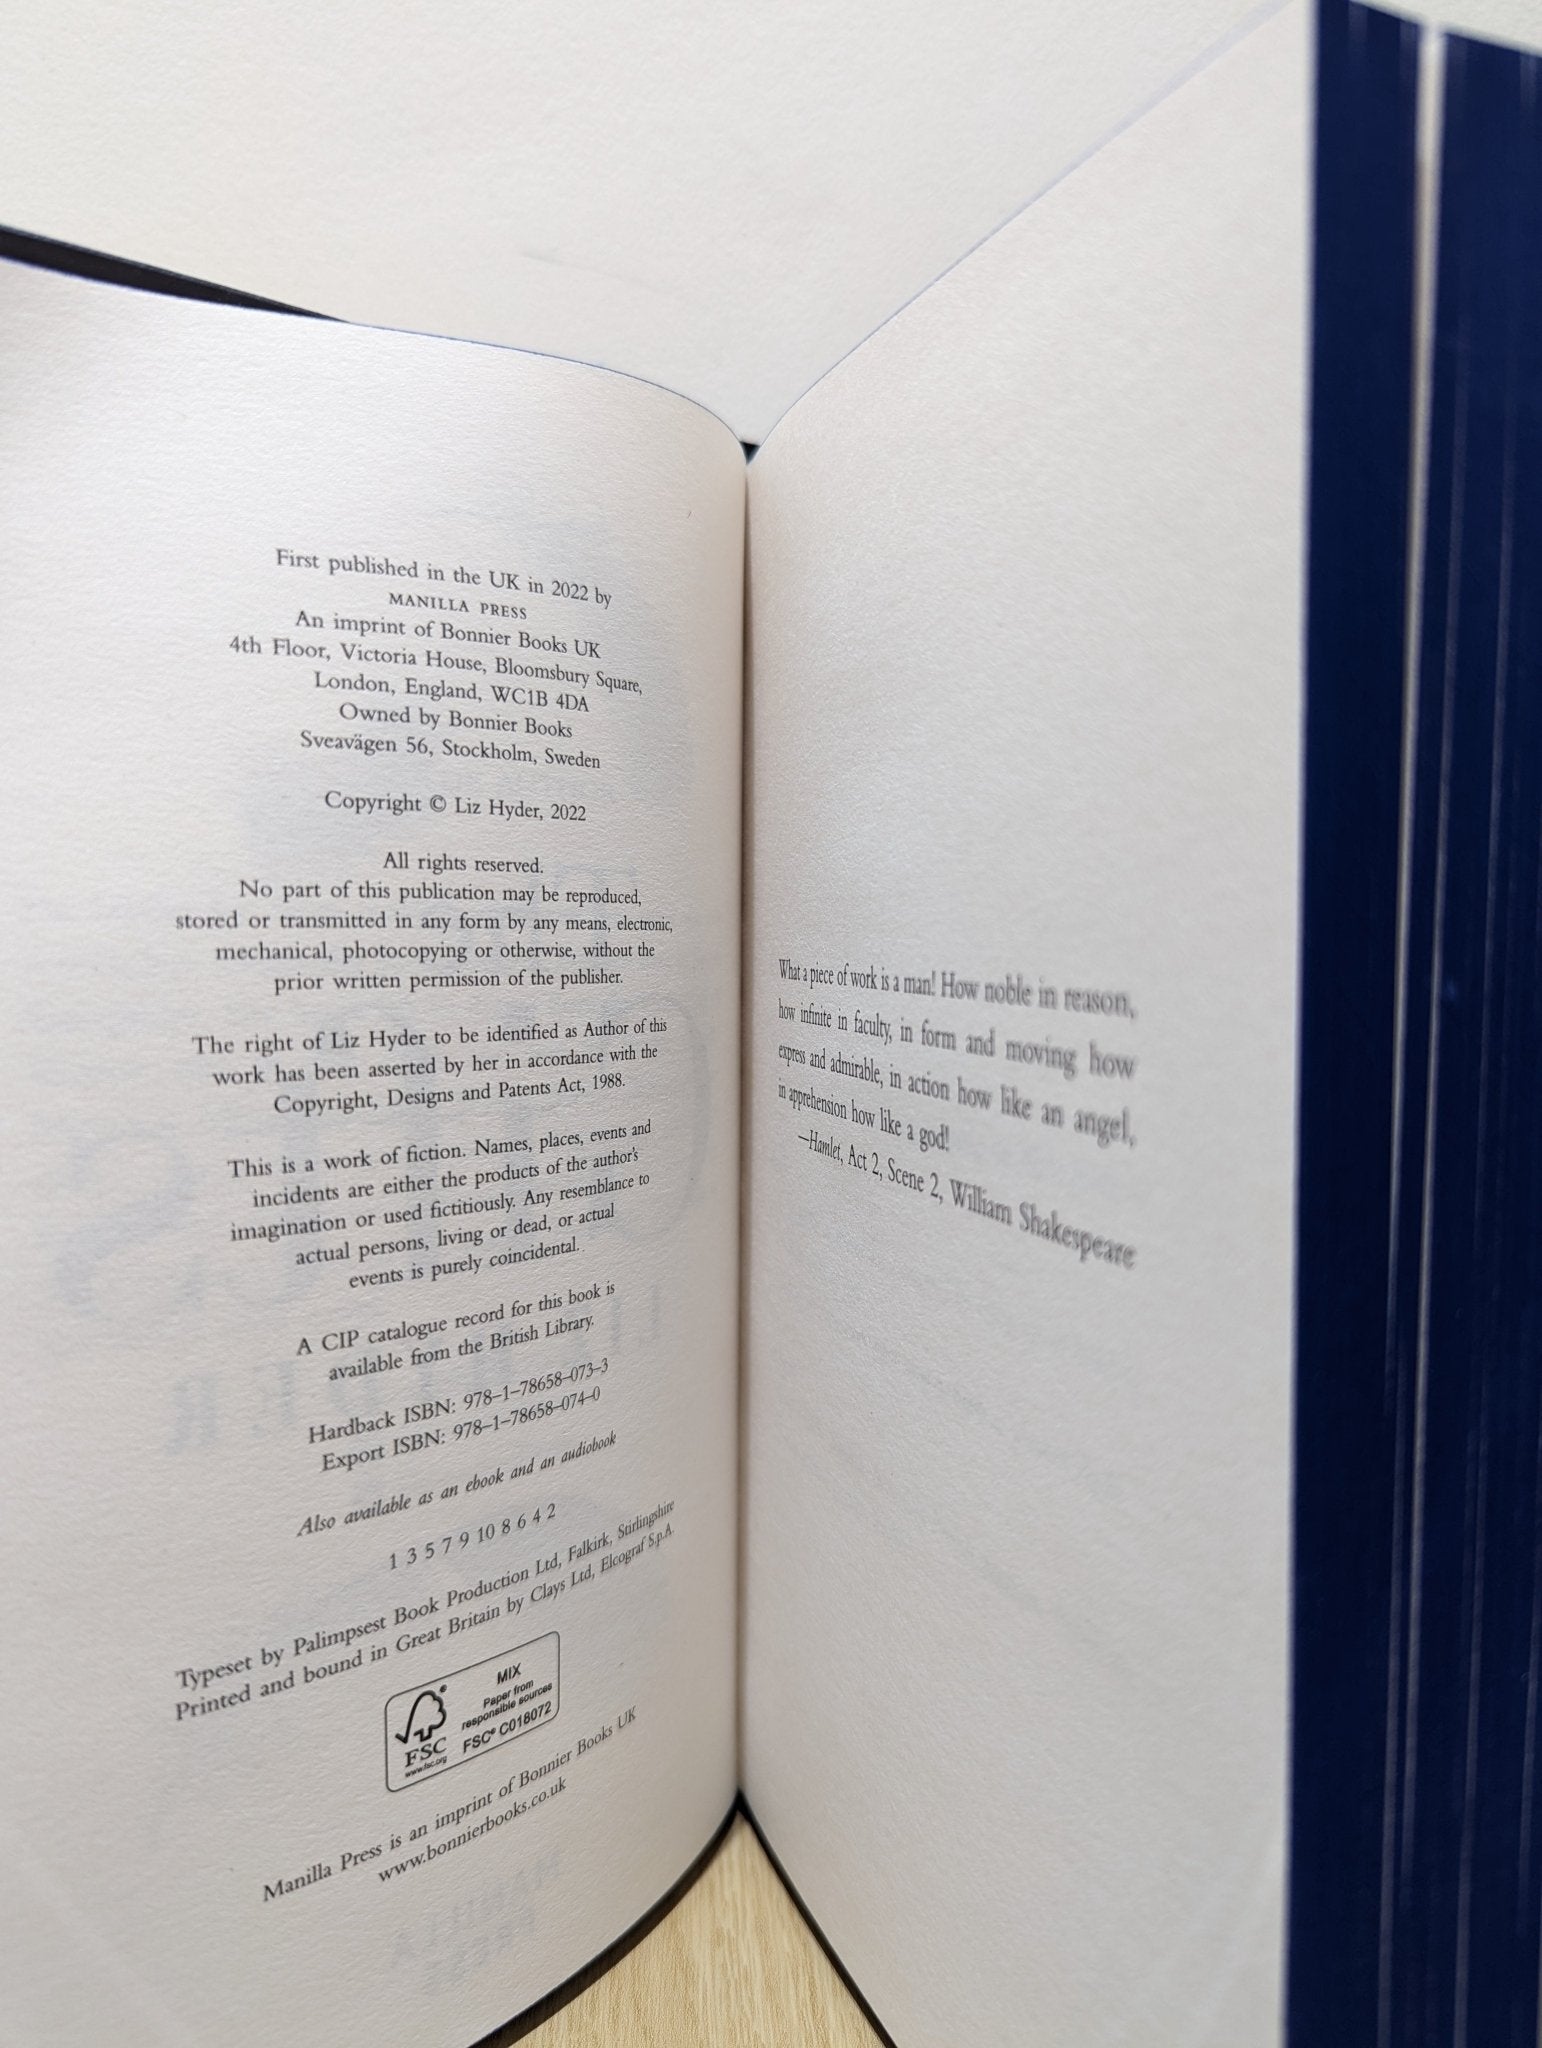 First published in the UK in 2022 by
MANILLA PRESS
An imprint of Bonnier Books UK
4th Floor, Victoria House, Bloomsbury Square,
London, England, WC1B 4DA
Owned by Bonnier Books
Sveavägen 56, Stockholm, Sweden
Copyright © Liz Hyder, 2022
All rights reserved.
No part of this publication may be reproduced,
stored or transmitted in any form by any means, electronic,
mechanical, photocopying or otherwise, without the
prior written permission of the publisher.
The right of Liz Hyder to be identified as Author of this
work has been asserted by her in accordance with the
Copyright, Designs and Patents Act, 1988.
This is a work of fiction. Names, places, events and
incidents are either the products of the author's
imagination or used fictitiously. Any resemblance to
actual persons, living or dead, or actual
events is purely coincidental.
A CIP catalogue record for this book is
available from the British Library.
Hardback ISBN: 978–1–78658–073–3
Export ISBN: 978–1–78658–074–0
Also available as an ebook and an audiobook
1 3 5 7 9 10 8 6 4 2
Typeset by Palimpsest Book Production Ltd, Falkirk, Stirlingshire
Printed and bound in Great Britain by Clays Ltd, Elcograf S.p.A.
FSC
www.fsc.org
MIX
Paper from
responsible sources
FSC® C018072
Manilla Press is an imprint of Bonnier Books UK
www.bonnierbooks.co.uk
What a piece of work is a man! How noble in reason,
how infinite in faculty, in form and moving how
express and admirable, in action how like an angel,
in apprehension how like a god!
—Hamlet, Act 2, Scene 2, William Shakespeare